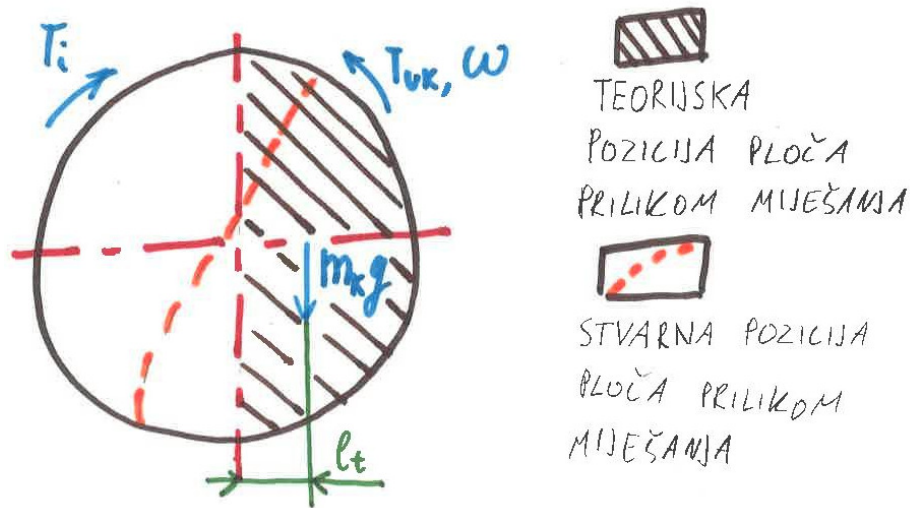 Ti
Tuk, ω
mkg
lt
TEORIJSKA
POZICIJA PLOČA
PRILIKOM MIJEŠANJA
STVARNA POZICIJA
PLOČA PRILIKOM
MIJEŠANJA